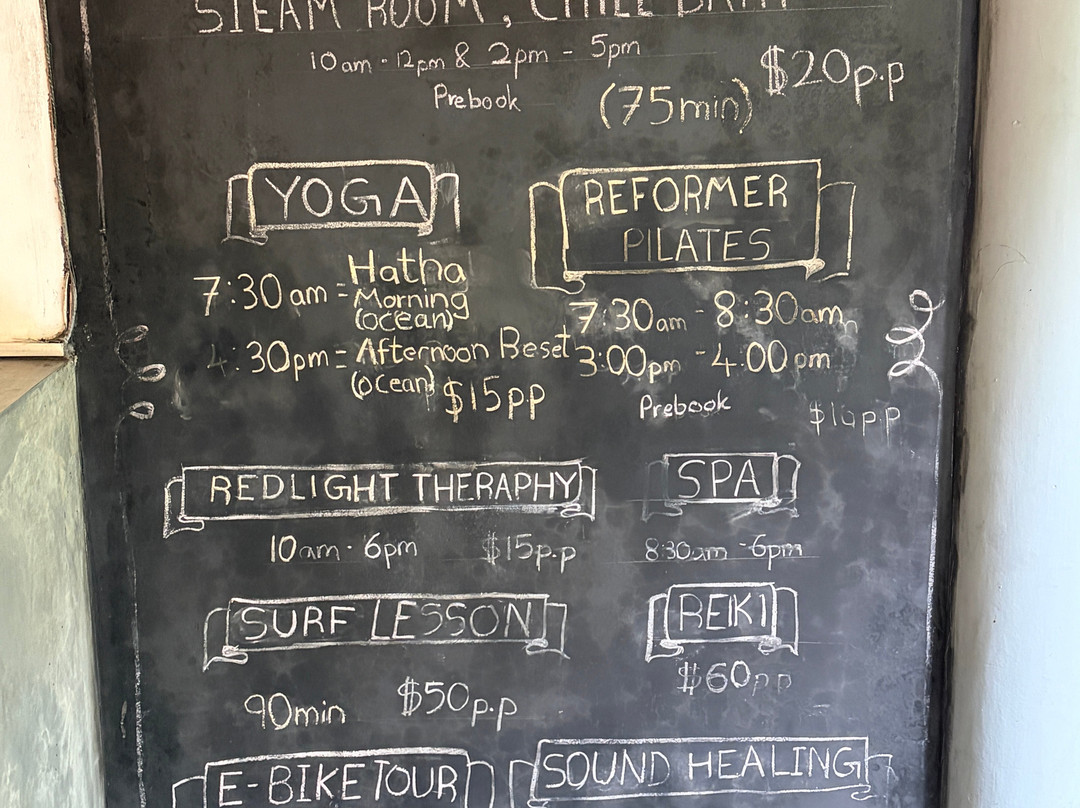 STEAM ROOM, CHILL BATH
10am - 12pm & 2pm - 5pm
$20p.p
Prebook
(75min)
YOGA
7:30am = Hatha
Morning
(ocean)
4:30pm = Afternoon Reset
(ocean)
$15pp
REFORMER
PILATES
7:30am - 8:30am
3:00pm - 4:00pm
Prebook
REDLIGHT THERAPHY
10am - 6pm $15p.p
SPA
8:30am - 6pm
SURF LESSON
90min $50p.p
REIKI
$60pp
E-BIKE TOUR
SOUND HEALING